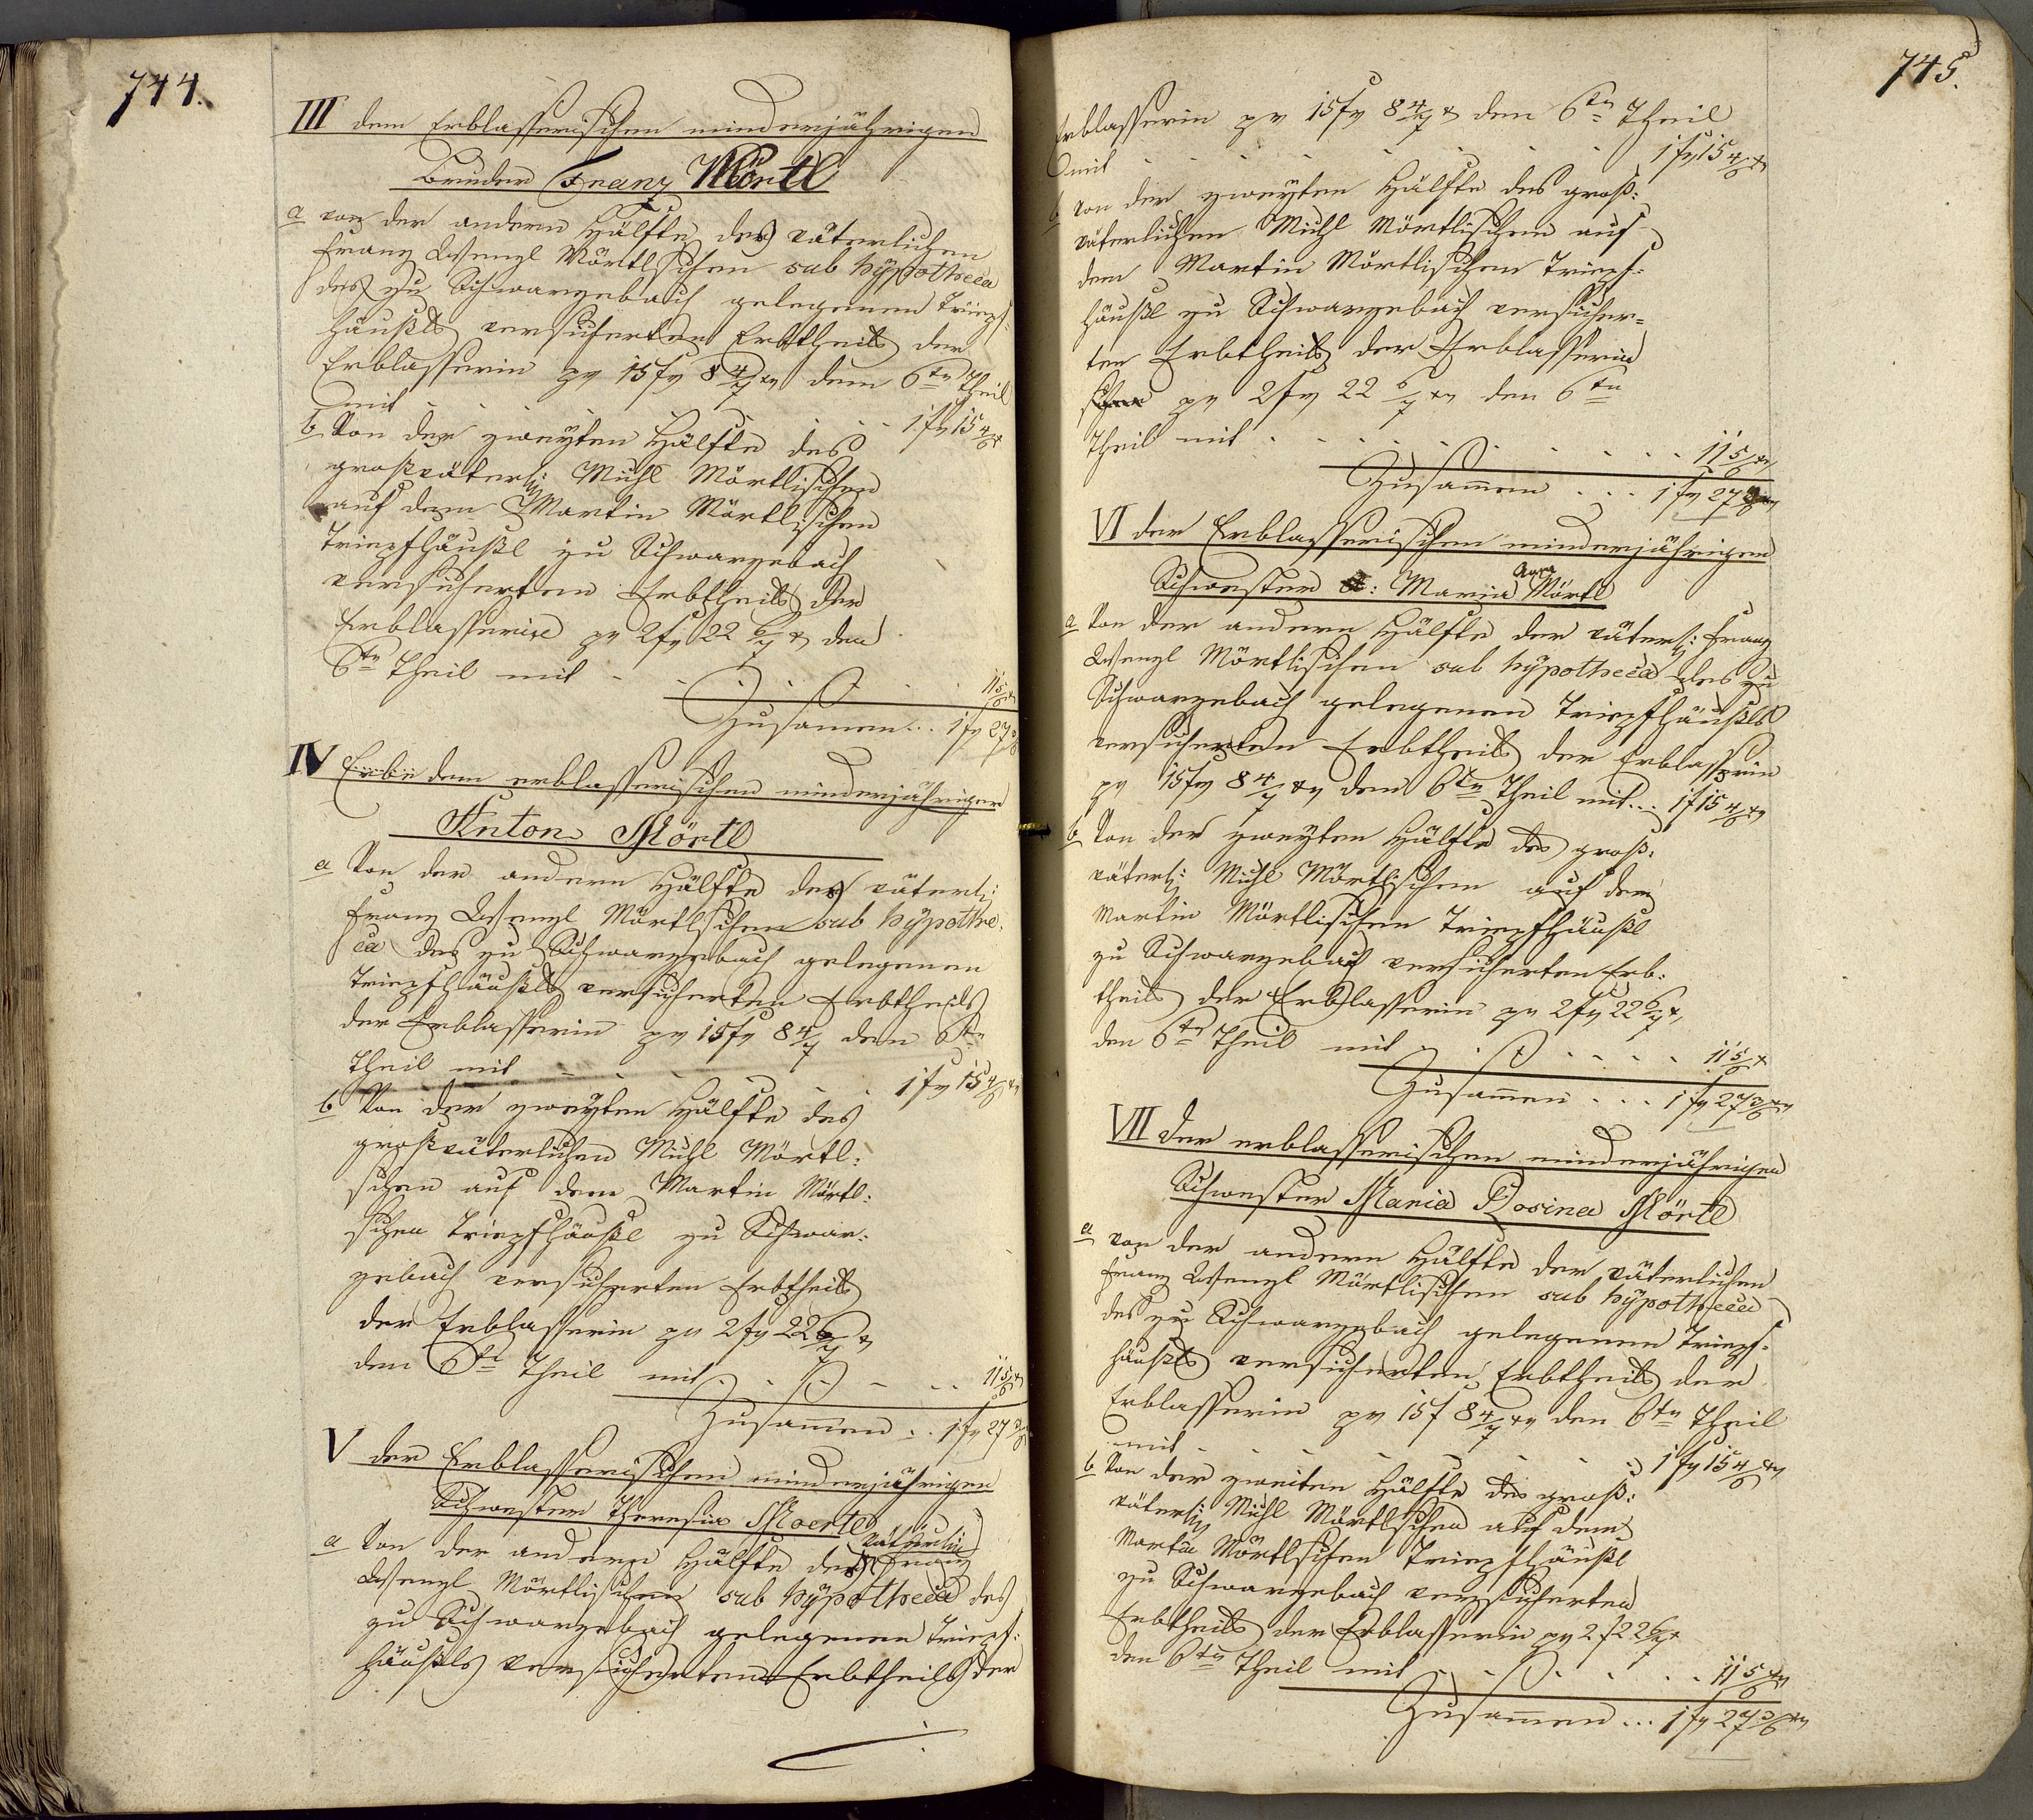 744.
III dem Erblasserischen minderjährigen
Bruder Franz Mörtl
a von der andern Hälfte des väterlichen
Franz Wenzl Mörtlschen sub hÿpotheca
des zu Schwarzebach gelegenen Triepf-
häußls versicherten Erbtheils der
Erblasserin pr 15 fr 8 4/7 xr den 6ten Theil
mit . . . . . . 1 fr 15 4/6 x
b Von der zweÿten Hälfte des
großväterl: Michl Mörtlischen
auf dem Martin Mörtlischen
Triepfhäußl zu Schwarzebach
versicherten Erbtheils der
Erblasserin pr 2 fr 22 6/7 x den
6ten Theil mit . . . . . . 11 5/6 x
Zusamen... 1 fr 27 3/6
IV Erbe dem erblasserischen minderjährigen
Anton Mörtl
a Von der andern Hälfte des väterl:
Franz Wenzl Mörtlschen sub hÿpothe-
ca des zu Schwarzebach gelegenen
Triepfhäußls versicherten Erbtheils
der Erblasserin pr 15 fr 8 4/7 den 6ten
Theil mit . . . . . 1 fr 15 4/6 xr
b Von der zweÿten Hälfte des
großväterlichen Michl Mörtl-
schen auf dem Martin Mörtl-
schen Triepfhäußl zu Schwar-
zebach versicherten Erbtheils
der Erblasserin pr 2 fr 22 6/7 x
den 6ten Theil mit . . . . . 11 5/6 x
Zusammen . . 1 fr 27 3/6
V der Erblasserischen minderjährigen
Schwester Theresia Moertl
a Von der andern Hälfte des väterlich Franz
Wenzl Mörtlischen sub hÿpotheca des
zu Schwarzebach gelegenen Triepf-
häußls versicherten Erbtheils der
745.
Erblasserin pr 15 fr 8 4/7 x den 6ten Theil
mit . . . . . . 1 fr 15 4/6 x
b Von der zweÿten Hälfte des groß-
väterlichen Michl Mörtlischen auf
dem Martin Mörtlischen Triepf-
häußl zu Schwarzebach versicher-
ten Erbtheils der Erblasserin
pr 2 fr 22 6/7 xr den 6ten
Theil mit . . . . . . . 11 5/6 xr
Zusammen . . . 1 fr 27 3/6 xr
VI der Erblasserischen minderjährigen
Schwester Maria Anna Mörtl
a Von der andern Hälfte der väterl: Franz
Wenzl Mörtlischen sub hÿpotheca des zu
Schwarzebach gelegenen Triepfhäußls
versicherten Erbtheils der Erblasserin
pr 15 fr 8 4/7 xr dem 6ten Theil mit... 1 f 15 4/6 xr
b Von der zweÿten Hälfte des groß-
väterl: Michl Mörtlschen auf dem
Martin Mörtlischen Triepfhäußl
zu Schwarzebach versicherten Erb-
theils der Erblasserin pr 2 fr 22 6/7 x
den 6ten Theil mit . . . . . 11 5/6 x
Zusammen . . . 1 fr 27 3/6 xr
VII der erblasserischen minderjährigen
Schwester Maria Rosina Mörtl
a von der andern Hälfte der väterlichen
Franz Wenzl Mörtlischen sub hÿpotheca
des zu Schwarzebach gelegenen Triepf-
häußls versicherten Erbtheils der
Erblasserin pr 15 f 8 4/7 xr den 6ten Theil
mit . . . . . . 1 fr 15 4/6 xr
b Von der zweiten Hälfte des groß-
väterl: Michl Mörtlschen auf dem
Martin Mörtlschen Triepfhäußl
zu Schwarzebach versicherten
Erbtheils der Erblasserin pr 2 f 22 6/7 x
den 6ten Theil mit . . . . . 11 5/6 xr
Zusammen ... 1 fr 27 3/6 xr